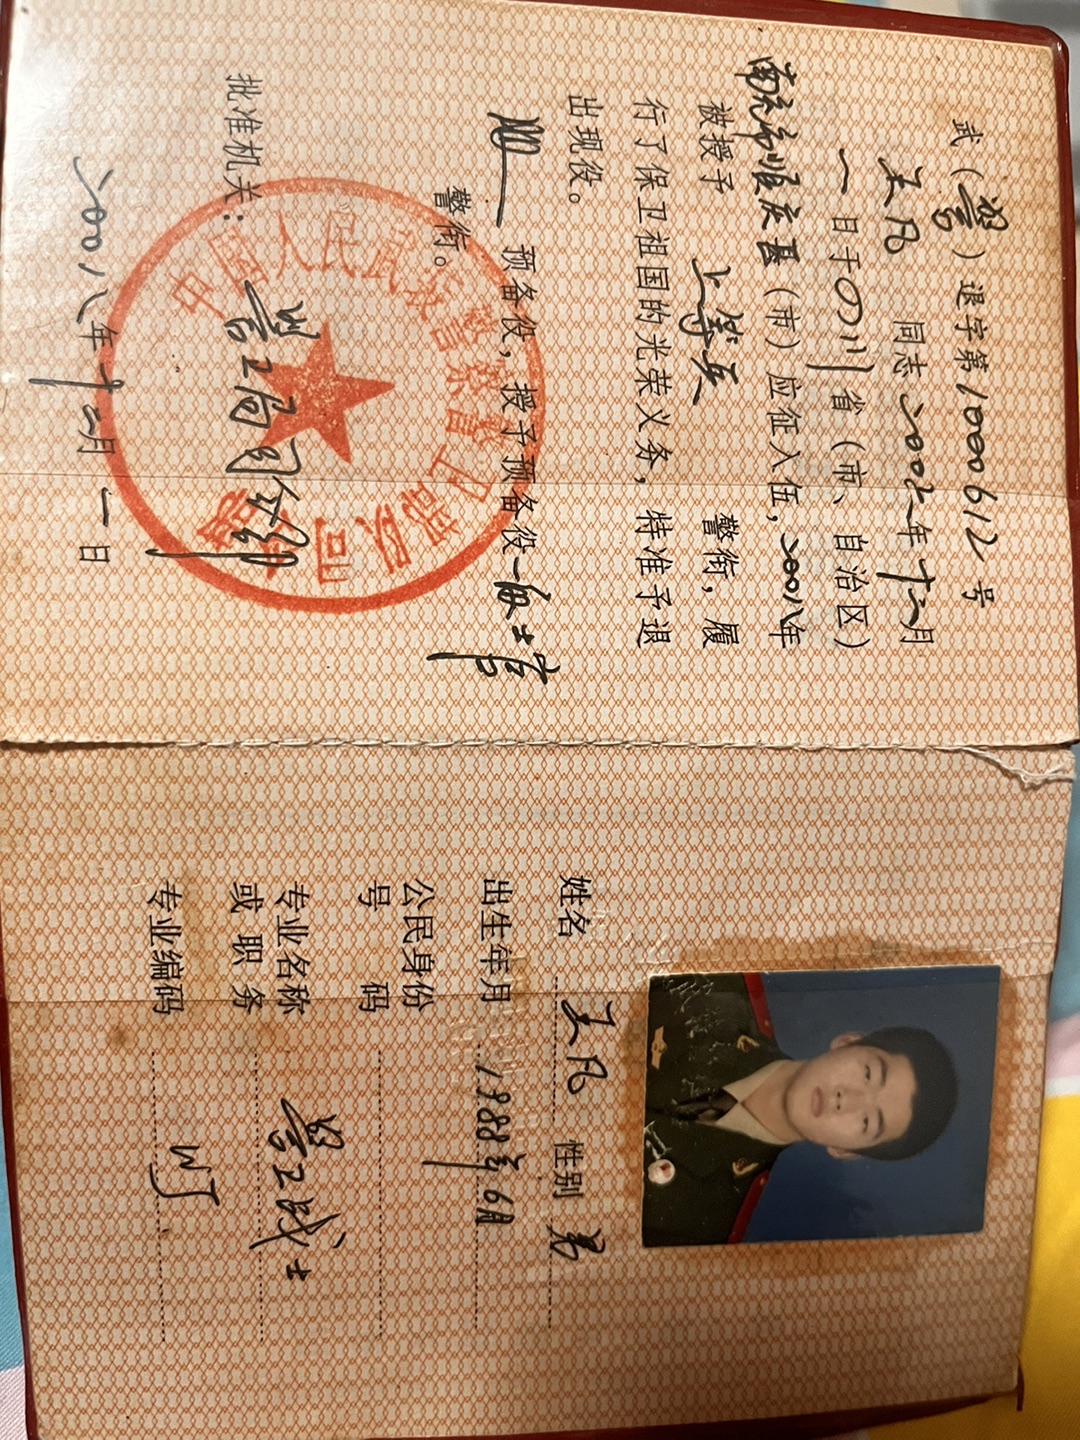 武（警）退字第10006612号
王凡 同志2002年十二月
一日于四川省（市、自治区）
南充市顺庆县（市）应征入伍，2008年
被授予 上等兵 警衔，履
行了保卫祖国的光荣义务，特准予退
出现役。
预备役，授予预备役
警衔。
批准机关：
警卫局司令部
中国人民武装警察部队
二00八年十二月一日
姓名 王凡 性别 男
出生年月 1988年6月
公民身份
号码
专业名称
或职务 警卫战士
专业编码 WJ